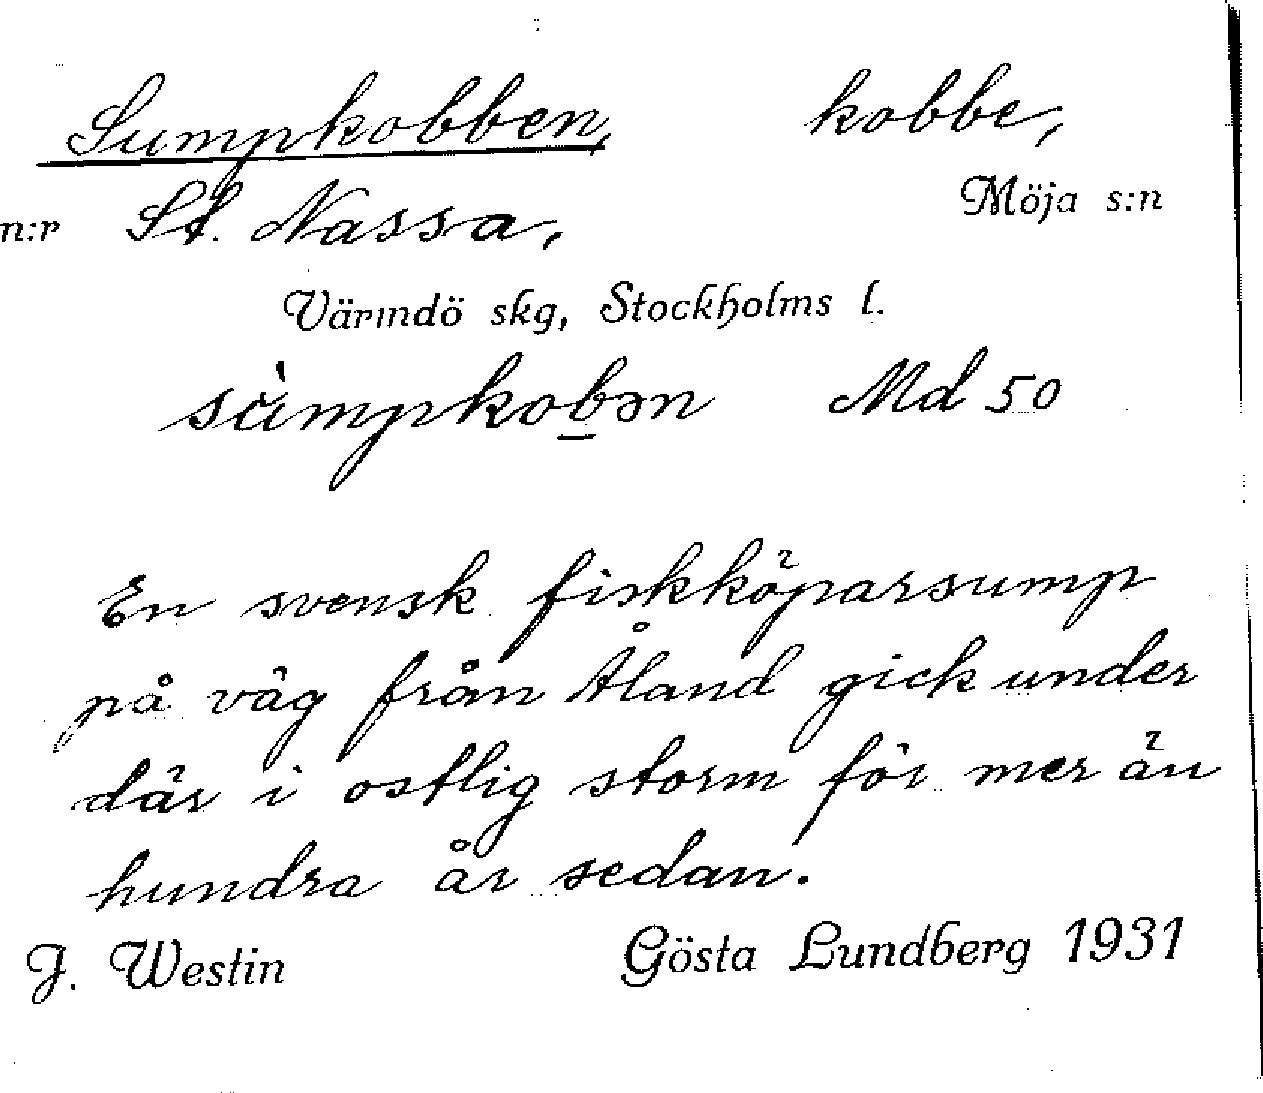 Sumpkobben, kobbe,
n:r St. Nassa, Möja s:n
Värmdö skg, Stockholms l.
sùmpkob̲ən Md 50
En svensk fiskköparsump
på väg från Åland gick under
där i ostlig storm för mer än
hundra år sedan.
J. Westin Gösta Lundberg 1931